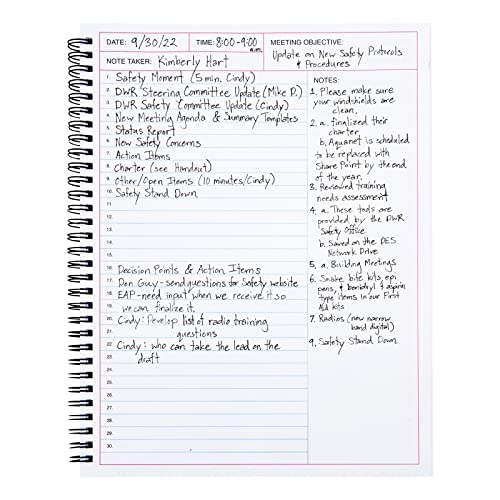 DATE: 9/30/22 TIME: 8:00-9:00 a.m. MEETING OBJECTIVE:
NOTE TAKER: Kimberly Hart
Update on New Safety Protocols
& Procedures
1. Safety Moment (5 min. Cindy)
2. DWR Steering Committee Update (Mike D.)
3. DWR Safety Committee Update (Cindy)
4. New Meeting Agenda & Summary Templates
5. Status Report
6. New Safety Concerns
7. Action Items
8. Charter (see Handout)
9. Other/Open Items (10 minutes/Cindy)
10. Safety Stand Down
11.
12.
13.
14.
15.
16. Decision Points & Action Items
17. Don Guy-send questions for Safety website
18. EAP-need input when we receive it so
19. we can finalize it.
20. Cindy: Develop list of radio training
21. questions
22. Cindy: who can take the lead on the
23. draft
24.
25.
26.
27.
28.
29.
30.
NOTES:
1. Please make sure
your windshields are
clean.
2. a. finalized their
charter
b. Aquanet is scheduled
to be replaced with
Share Point by the end
of the year.
3. Reviewed training
needs assessment
4. a. These tools are
provided by the DWR
Safety Office
b. Saved on the DES
Network Drive
5. a. Building Meetings
6. Snake bite kits, epi
pens, & benadryl & aspirin
type items in our First
Aid kits
7. Radios (new narrow
band digital)
9. Safety Stand Down